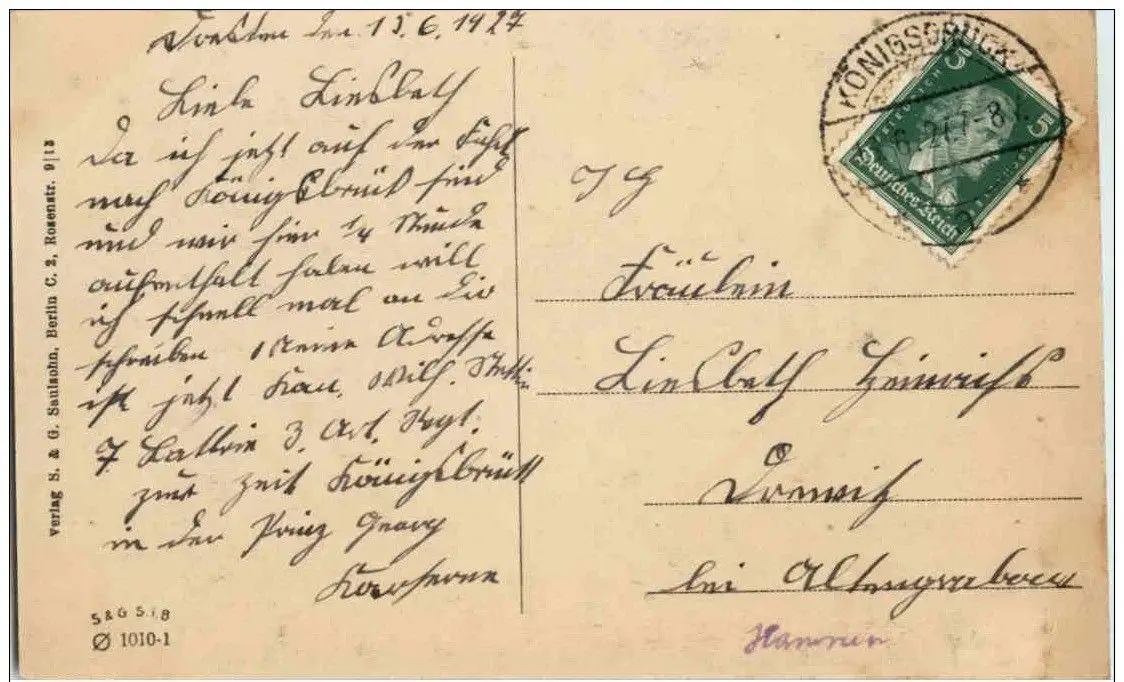 Dresden den 15.6.1927
Liebe Liesbeth
Da ich jetzt auf der Fahrt
nach Königsbrück sind
und wir hier 1/4 Stunde
aufenthalt haben will
ich schnell mal an Dir
schreiben Meine Adresse
ist jetzt Kan. Wilh. Stettin
7 Battrie 3. Art. Regt.
zur zeit Königsbrück
in der Prinz Georg
Kaserne
Verlag S. & G. Saulsohn, Berlin C. 2, Rosenstr. 9|13
S & G S. i. B
1010-1
KÖNIGSBRÜCK
6.27.7-8
5 5
Deutsches Reich
Fräulein
Liesbeth Heinrichs
Drewitz
bei Altengrabow